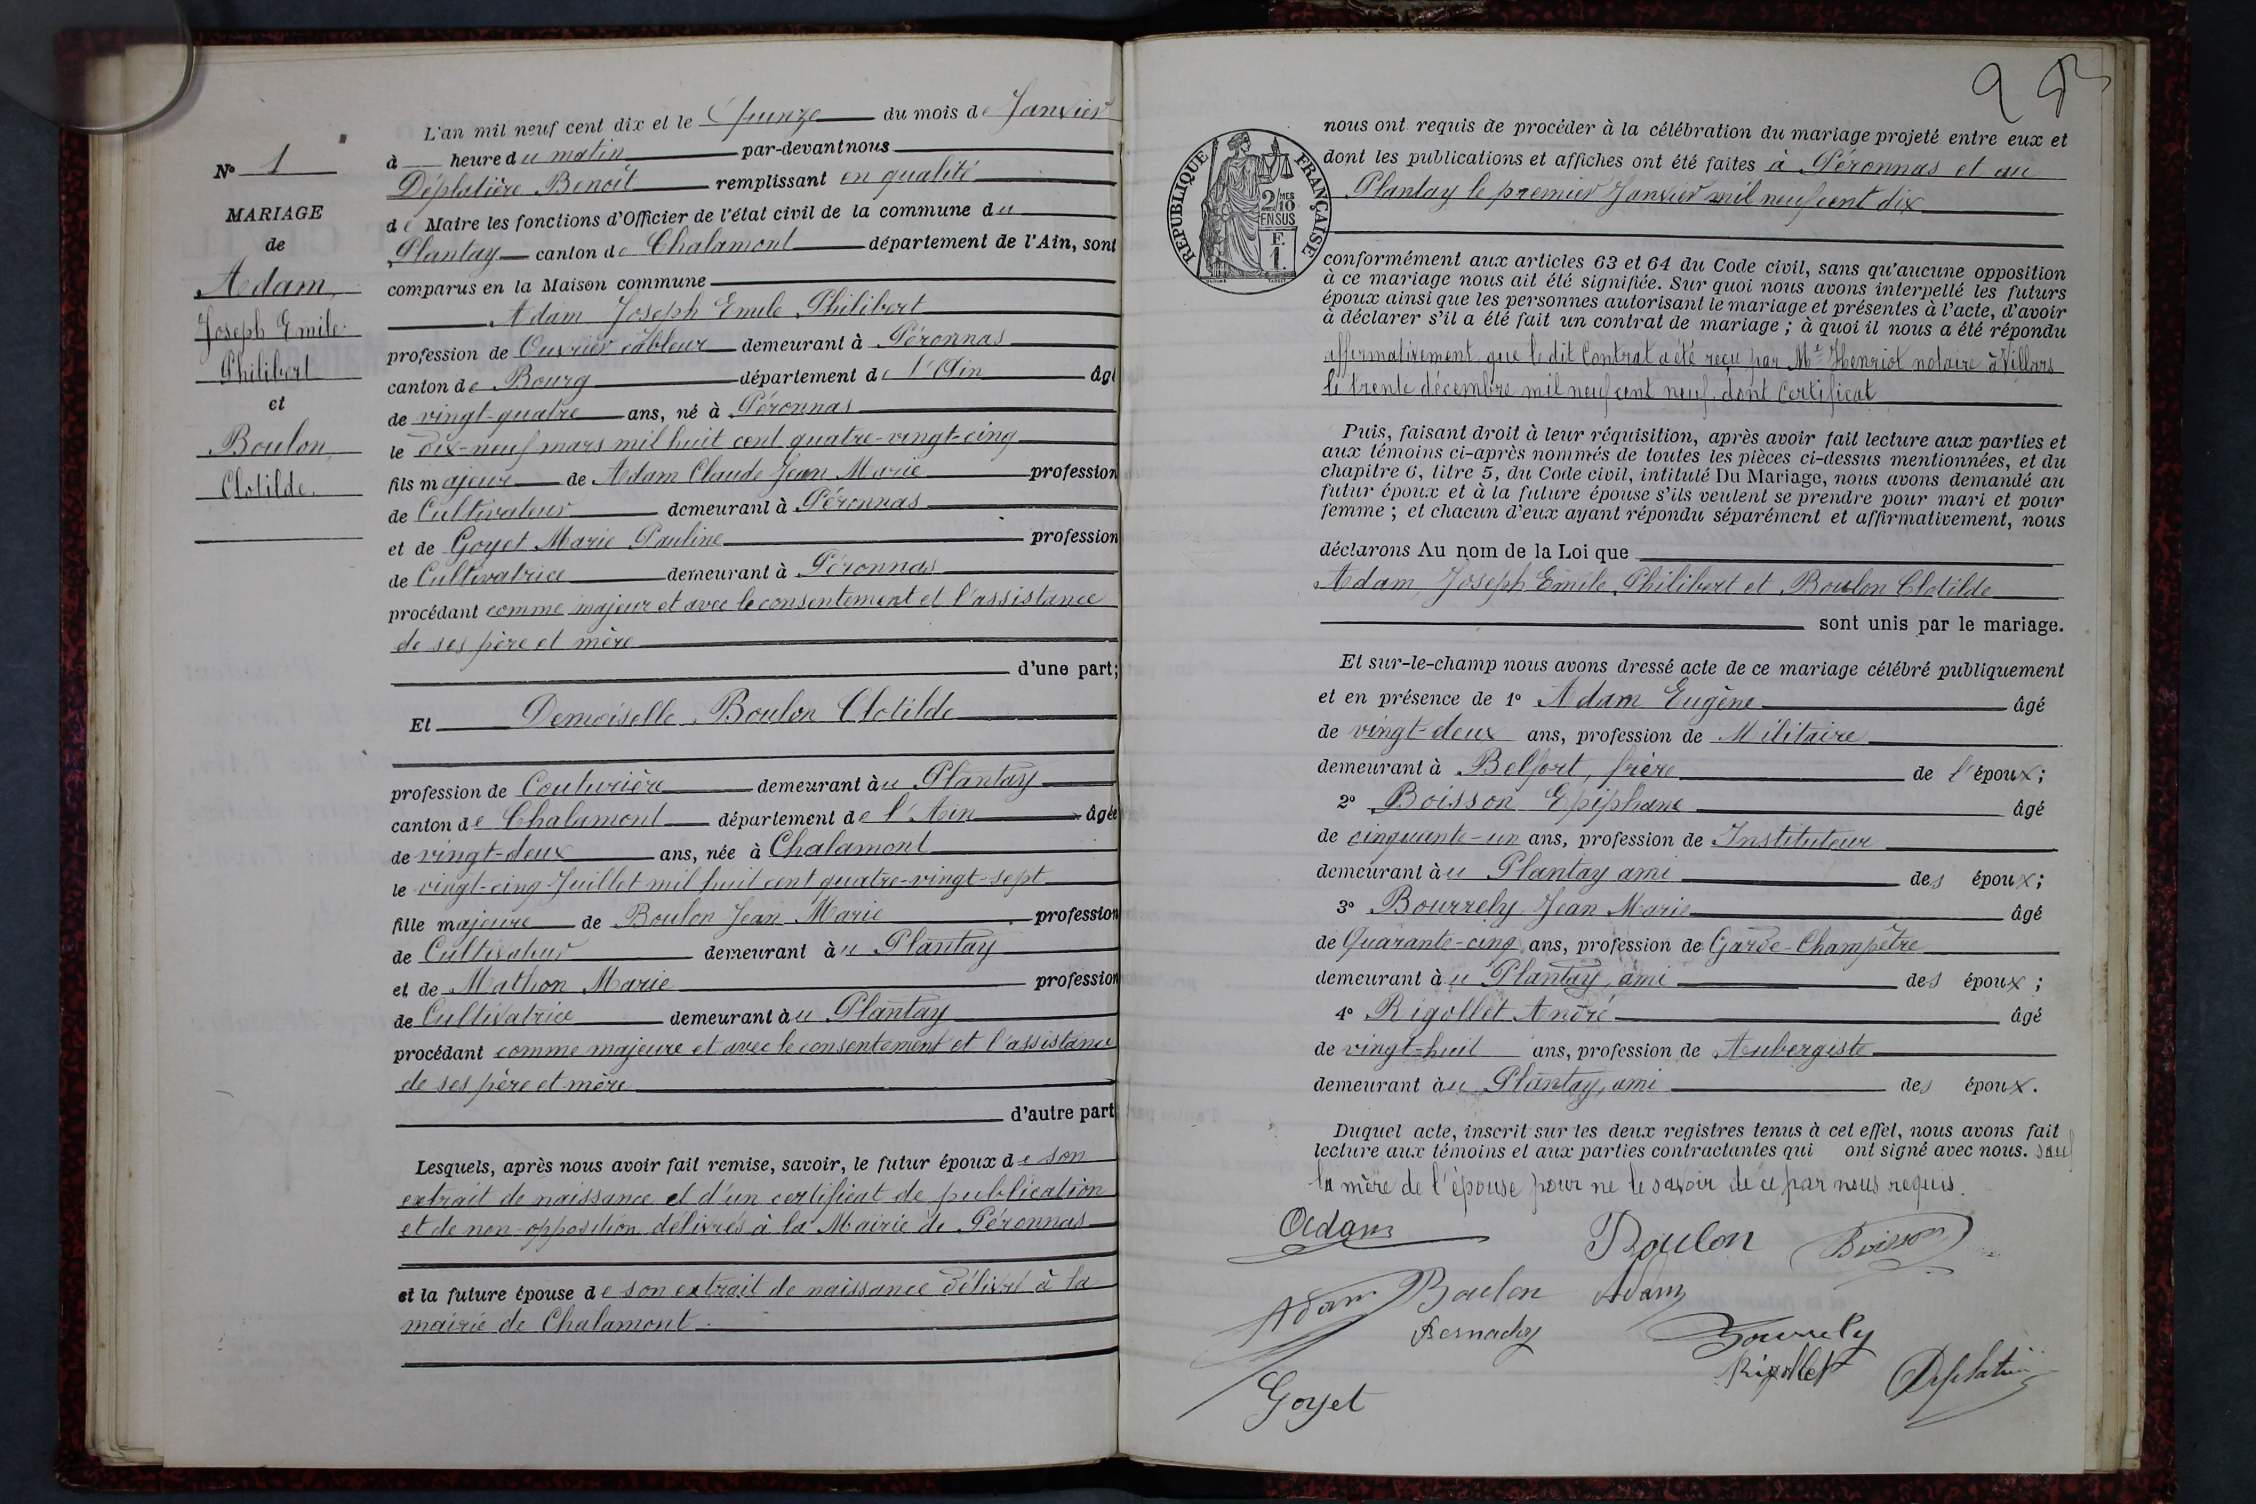 N° 1
MARIAGE
de
Adam
Joseph Emile
Philibert
et
Boulon
Clotilde
L'an mil neuf cent dix et le Quinze du mois de Janvier
à heure du matin par-devant nous
Déplatière Benoît remplissant en qualité
de Maire les fonctions d'Officier de l'état civil de la commune du
Plantay canton de Chalamont département de l'Ain, sont
comparus en la Maison commune
Adam Joseph Emile Philibert
profession de Ouvrier câbleur demeurant à Péronnas
canton de Bourg département de l'Ain âgé
de vingt-quatre ans, né à Péronnas
le dix-neuf mars mil huit cent quatre-vingt-cinq
fils majeur de Adam Claude Jean Marie profession
de Cultivateur demeurant à Péronnas
et de Goyet Marie Pauline profession
de Cultivatrice demeurant à Péronnas
procédant comme majeur et avec le consentement et l'assistance
de ses père et mère
d'une part;
Et Demoiselle Boulon Clotilde
profession de Couturière demeurant àu Plantay
canton de Chalamont département de l'Ain âgée
de vingt-deux ans, née à Chalamont
le vingt-cinq Juillet mil huit cent quatre-vingt-sept
fille majeure de Boulon Jean Marie profession
de Cultivateur demeurant àu Plantay
et de Mathon Marie profession
de Cultivatrice demeurant àu Plantay
procédant comme majeure et avec le consentement et l'assistance
de ses père et mère
d'autre part
Lesquels, après nous avoir fait remise, savoir, le futur époux de son
extrait de naissance et d'un certificat de publication
et de non-opposition délivrés à la Mairie de Péronnas
et la future épouse de son extrait de naissance délivré à la
mairie de Chalamont.
RÉPUBLIQUE FRANÇAISE
2/MES
10
EN SUS
F.
1.
nous ont requis de procéder à la célébration du mariage projeté entre eux et
dont les publications et affiches ont été faites à Péronnas et au
Plantay le premier Janvier mil neuf cent dix
conformément aux articles 63 et 64 du Code civil, sans qu'aucune opposition
à ce mariage nous ait été signifiée. Sur quoi nous avons interpellé les futurs
époux ainsi que les personnes autorisant le mariage et présentes à l'acte, d'avoir
à déclarer s'il a été fait un contrat de mariage ; à quoi il nous a été répondu
affirmativement que le dit Contrat a été reçu par Me Henriot notaire à Villars
le trente décembre mil neuf cent neuf, dont Certificat
Puis, faisant droit à leur réquisition, après avoir fait lecture aux parties et
aux témoins ci-après nommés de toutes les pièces ci-dessus mentionnées, et du
chapitre 6, titre 5, du Code civil, intitulé Du Mariage, nous avons demandé au
futur époux et à la future épouse s'ils veulent se prendre pour mari et pour
femme ; et chacun d'eux ayant répondu séparément et affirmativement, nous
déclarons Au nom de la Loi que
Adam Joseph Emile Philibert et Boulon Clotilde
sont unis par le mariage.
Et sur-le-champ nous avons dressé acte de ce mariage célébré publiquement
et en présence de 1° Adam Eugène âgé
de vingt-deux ans, profession de Militaire
demeurant à Belfort, frère de l'époux;
2° Boisson Epiphane âgé
de cinquante-un ans, profession de Instituteur
demeurant àu Plantay ami des époux;
3° Bourrely Jean Marie âgé
de Quarante-cinq ans, profession de Garde-Champêtre
demeurant àu Plantay, ami des époux ;
4° Rigollet André âgé
de vingt-huit ans, profession de Aubergiste
demeurant àu Plantay, ami des époux.
Duquel acte, inscrit sur les deux registres tenus à cet effet, nous avons fait
lecture aux témoins et aux parties contractantes qui ont signé avec nous. Sauf
la mère de l'épouse pour ne le savoir de ce par nous requis.
Adam Boulon Boisson
Adam Boulon Adam
Bernachy Bourrely
Rigollet Déplatière
Goyet